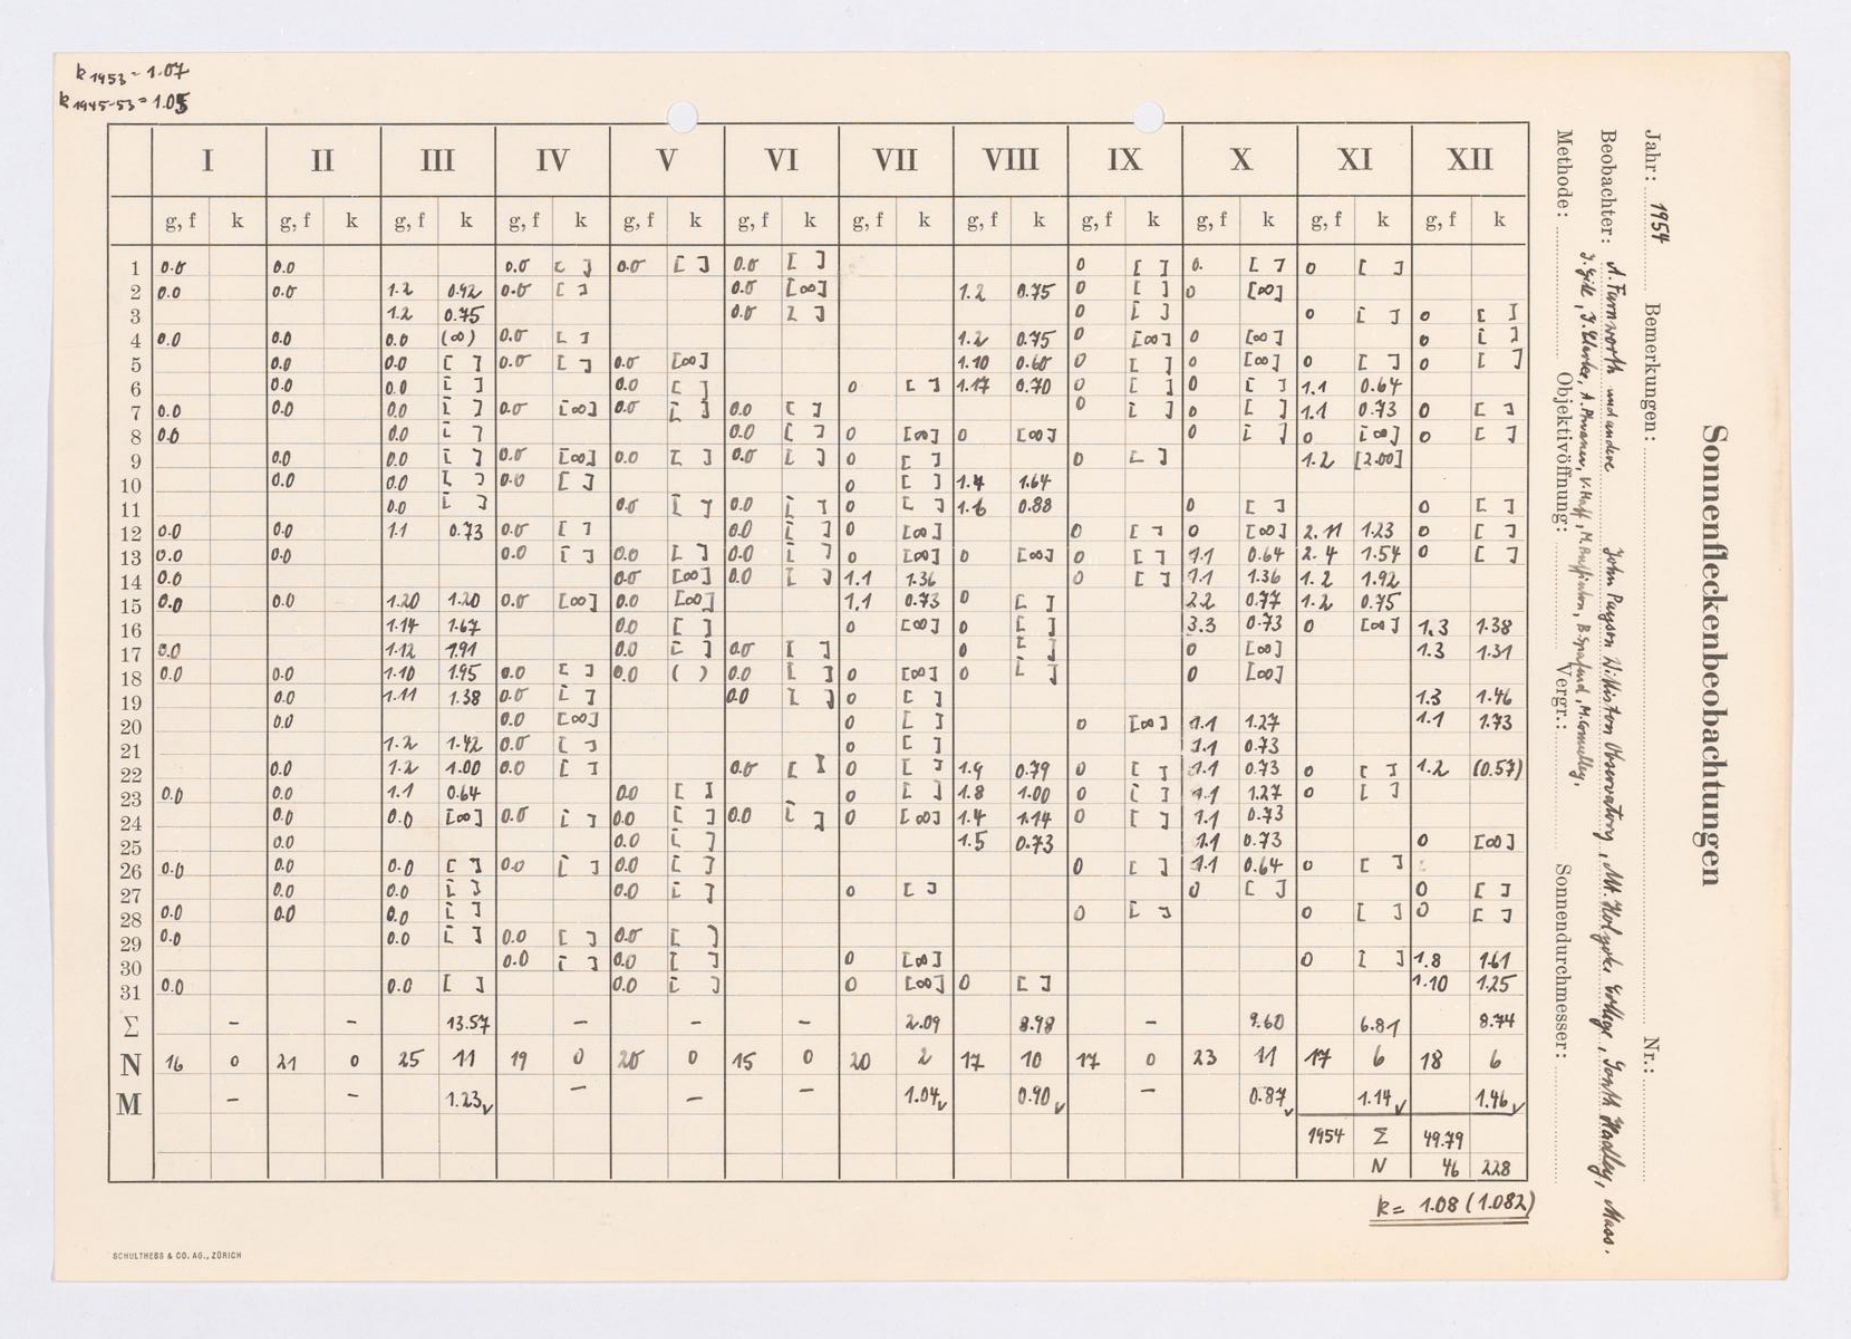 k 1953 = 1.07
k 1945-53 = 1.05
Sonnenfleckenbeobachtungen
Jahr: 1954 Bemerkungen: Nr.:
Beobachter: A. Farnsworth und andere John Payson Williston Observatory, Mt. Holyoke College, South Hadley, Mass.
Methode: Objektivöffnung: Vergr.: Sonnendurchmesser:
I II III IV V VI VII VIII IX X XI XII
g, f k g, f k g, f k g, f k g, f k g, f k g, f k g, f k g, f k g, f k g, f k g, f k
1 0.0 0.0 0.0 [ ] 0.0 [ ] 0.0 [ ] 0 [ ] 0. [ ] 0 [ ]
2 0.0 0.0 1.2 0.92 0.0 [ ] 0.0 [∞] 1.2 0.75 0 [ ] 0 [∞]
3 1.2 0.75 0.0 [ ] 0 [ ] 0 [ ] 0 [ ]
4 0.0 0.0 0.0 (∞) 0.0 [ ] 1.2 0.75 0 [∞] 0 [∞] 0 [ ]
5 0.0 0.0 [ ] 0.0 [ ] 0.0 [∞] 1.10 0.60 0 [ ] 0 [∞] 0 [ ] 0 [ ]
6 0.0 0.0 [ ] 0.0 [ ] 0 [ ] 1.17 0.70 0 [ ] 0 [ ] 1.1 0.64
7 0.0 0.0 0.0 [ ] 0.0 [∞] 0.0 [ ] 0.0 [ ] 0 [ ] 0 [ ] 1.1 0.73 0 [ ]
8 0.0 0.0 [ ] 0.0 [ ] 0 [∞] 0 [∞] 0 [ ] 0 [∞] 0 [ ]
9 0.0 0.0 [ ] 0.0 [∞] 0.0 [ ] 0.0 [ ] 0 [ ] 0 [ ] 1.2 [2.00]
10 0.0 0.0 [ ] 0.0 [ ] 0 [ ] 1.4 1.64
11 0.0 [ ] 0.0 [ ] 0.0 [ ] 0 [ ] 1.6 0.88 0 [ ] 0 [ ]
12 0.0 0.0 1.1 0.73 0.0 [ ] 0.0 [ ] 0 [∞] 0 [ ] 0 [∞] 2.11 1.23 0 [ ]
13 0.0 0.0 0.0 [ ] 0.0 [ ] 0.0 [ ] 0 [∞] 0 [∞] 0 [ ] 1.1 0.64 2.4 1.54 0 [ ]
14 0.0 0.0 [∞] 0.0 [ ] 1.1 1.36 0 [ ] 1.1 1.36 1.2 1.92
15 0.0 0.0 1.20 1.20 0.0 [∞] 0.0 [∞] 1.1 0.73 0 [ ] 2.2 0.77 1.2 0.75
16 1.14 1.67 0.0 [ ] 0 [∞] 0 [ ] 3.3 0.73 0 [∞] 1.3 1.38
17 0.0 1.12 1.91 0.0 [ ] 0.0 [ ] 0 [ ] 0 [∞] 1.3 1.31
18 0.0 0.0 1.10 1.95 0.0 [ ] 0.0 ( ) 0.0 [ ] 0 [∞] 0 [ ] 0 [∞]
19 0.0 1.11 1.38 0.0 [ ] 0.0 [ ] 0 [ ] 1.3 1.46
20 0.0 0.0 [∞] 0 [ ] 0 [∞] 1.1 1.27 1.1 1.73
21 1.2 1.42 0.0 [ ] 0 [ ] 1.1 0.73
22 0.0 1.2 1.00 0.0 [ ] 0.0 [ ] 0 [ ] 1.9 0.79 0 [ ] 1.1 0.73 0 [ ] 1.2 (0.57)
23 0.0 0.0 1.1 0.64 0.0 [ ] 0 [ ] 1.8 1.00 0 [ ] 1.1 1.27 0 [ ]
24 0.0 0.0 [∞] 0.0 [ ] 0.0 [ ] 0.0 [ ] 0 [∞] 1.4 1.14 0 [ ] 1.1 0.73
25 0.0 0.0 [ ] 1.5 0.73 1.1 0.73 0 [∞]
26 0.0 0.0 0.0 [ ] 0.0 [ ] 0.0 [ ] 0 [ ] 1.1 0.64 0 [ ]
27 0.0 0.0 [ ] 0.0 [ ] 0 [ ] 0 [ ] 0 [ ]
28 0.0 0.0 0.0 [ ] 0 [ ] 0 [ ] 0 [ ]
29 0.0 0.0 [ ] 0.0 [ ] 0.0 [ ]
30 0.0 [ ] 0.0 [ ] 0 [∞] 0 [ ] 1.8 1.61
31 0.0 0.0 [ ] 0.0 [ ] 0 [∞] 0 [ ] 1.10 1.25
Σ – – 13.57 – – – 2.09 8.98 – 9.60 6.81 8.74
N 16 0 21 0 25 11 19 0 20 0 15 0 20 2 17 10 17 0 23 11 17 6 18 6
M – – 1.23 – – – 1.04 0.90 – 0.87 1.14 1.46
1954 Σ 49.79
N 46 228
k = 1.08 (1.082)
SCHULTHESS & CO. AG., ZÜRICH